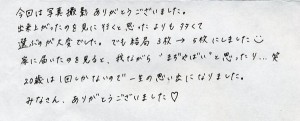 今回は写真撮影ありがとうございました。
出来上がったのを見に行くと思ったより多くて
選ぶのが大変でした。でも結局3枚→5枚にしました
家に届いたのを見ると、我ながら"まぢやばい"と思ったり…笑
20歳は1回しかないので一生の思い出になりました。
みなさん、ありがとうございました♡